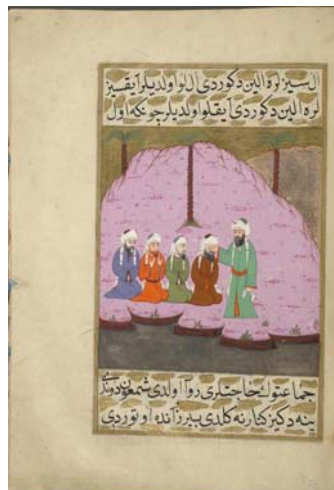 ال سیز لره الین دکوردی ال لو اولدیلر آیقسیز
لره الین دکوردی آیقلو اولدیلر چونکه اول
جماعتوك حاجتلری روا اولدی شمعون دوندی
ینه دکیز کنارنه کلدی بیر زمانده اوتوردی